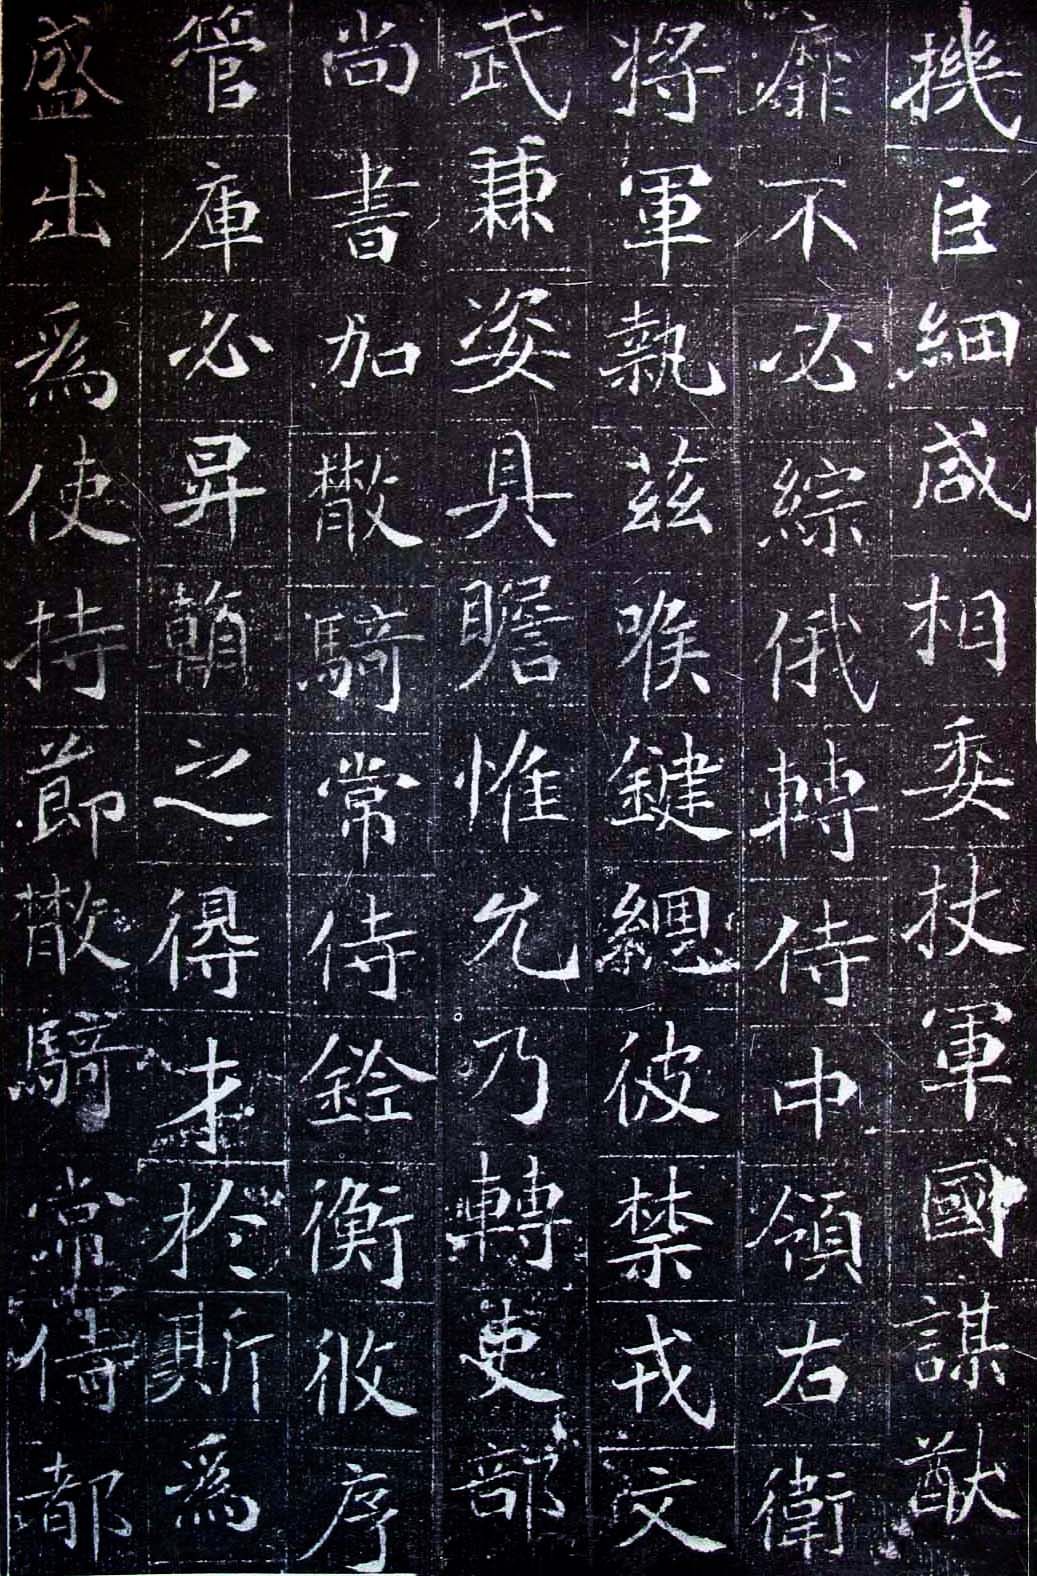 機巨細咸相委杖軍國謀猷
靡不必綜俄轉侍中領右衛
將軍執茲喉鍵總彼禁戎文
武兼姿具瞻惟允乃轉吏部
尚書加散騎常侍銓衡攸序
管庫必昇賴之得才於斯為
盛出為使持節散騎常侍都